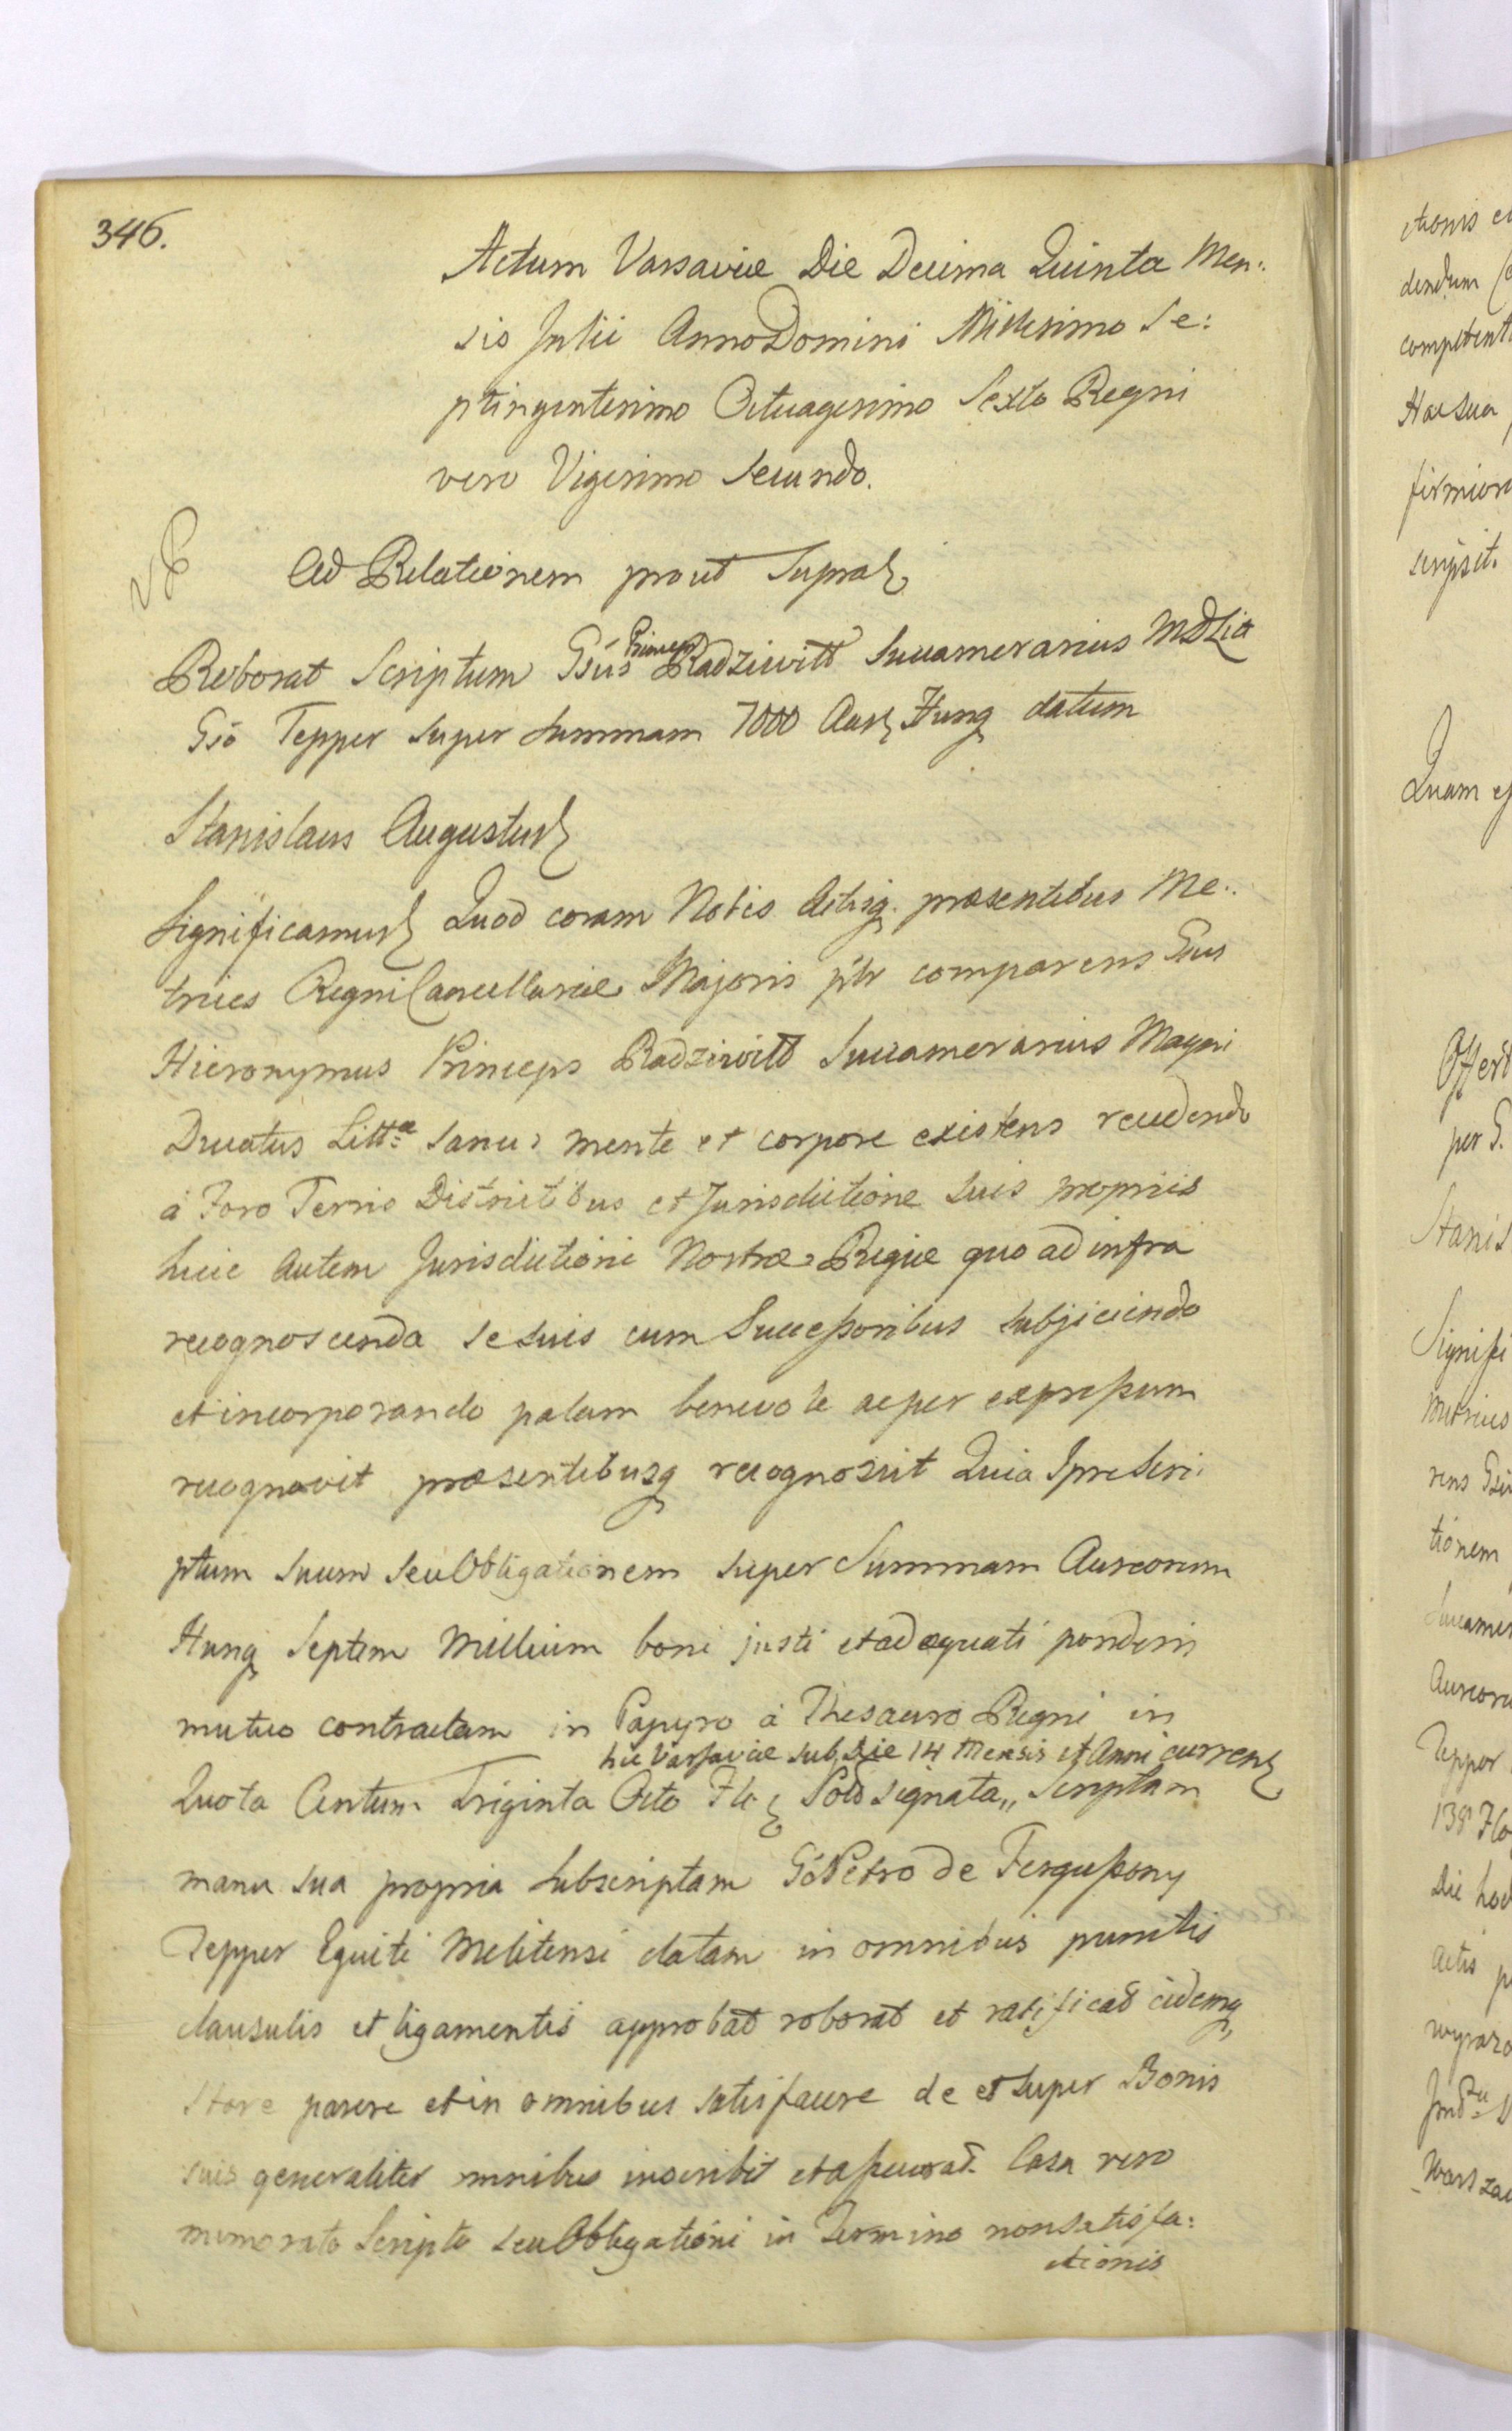 346.
Actum Varsaviæ Die Decima Quinta Men:
sis Julii Anno Domini Millesimo Se:
ptingentesimo Octuagesimo Sexto Regni
vero Vigesimo Secundo.
Ad Relationem prout Supra
Roborat Scriptum Gsus Princeps Radziwiłł Succamerarius MDLit
Gso Tepper super summam 7000 Aur Hung datum
Stanislaus Augustus
Significamus Quod coram Nobis Actisq. præsentibus Me:
trices Regni Cancellariæ Majoris ptr comparens Gsus
Hieronymus Princeps Radziwiłł Succamerarius Magni
Ducatus Littæ sanus mente et corpore existens recedendo
à Foro Terris Districtibus et Jurisdictione suis propriis
huic autem Jurisdictioni Nostræ Regiæ quo ad infra
recognoscenda se suis cum Successoribus subjiciendo
et incorporando palam benevole ac per expressum
recognovit præsentibusq recognoscit Quia Ipse Scri:
ptum suum seu Obligationem super Summam Aureorum
Hung Septem Millium boni justi et adæquati ponderis
mutuo contractam in Papyro à Thesauro Regni in
hic Varsaviæ sub Die 14 Mensis et Anni curren
Quota Centum Triginta Octo Flo Pold signata,, Scriptam
manu sua propria subscriptam Gó Petro de Fergussony
Tepper Equiti Melitensi datam in omnibus punctis
clausulis et ligamentis approbat roborat et ratificat eidemq
stare parere et in omnibus satisfacere de et super Bonis
suis generaliter omnibus inscribit et assecurat. Casu vero
memorato Scripto seu Obligationi in Termino non satisfa:
ctionis
ctionis
dendum
competent
Hac sua
firmiore
scripsit.
Quam
Offert
per G.
Stanis
Signifi
Metrices
rens
tionem
Succamer
Aureoru
Tepper
138 Flo
Die hod
actis
wyraz
Warszaw